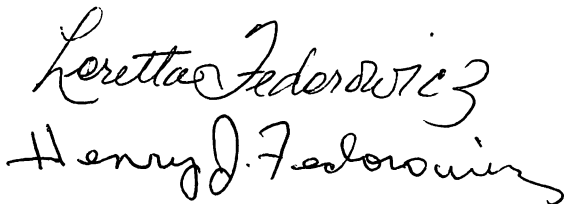 Loretta Fedorowicz
Henry J. Fedorowicz